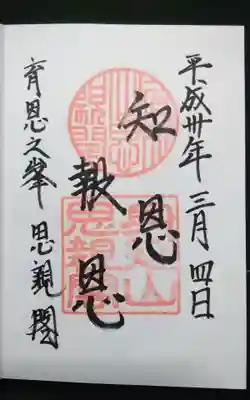 平成卅年 三月 四日
知恩
報恩
育恩之峯 思親閣